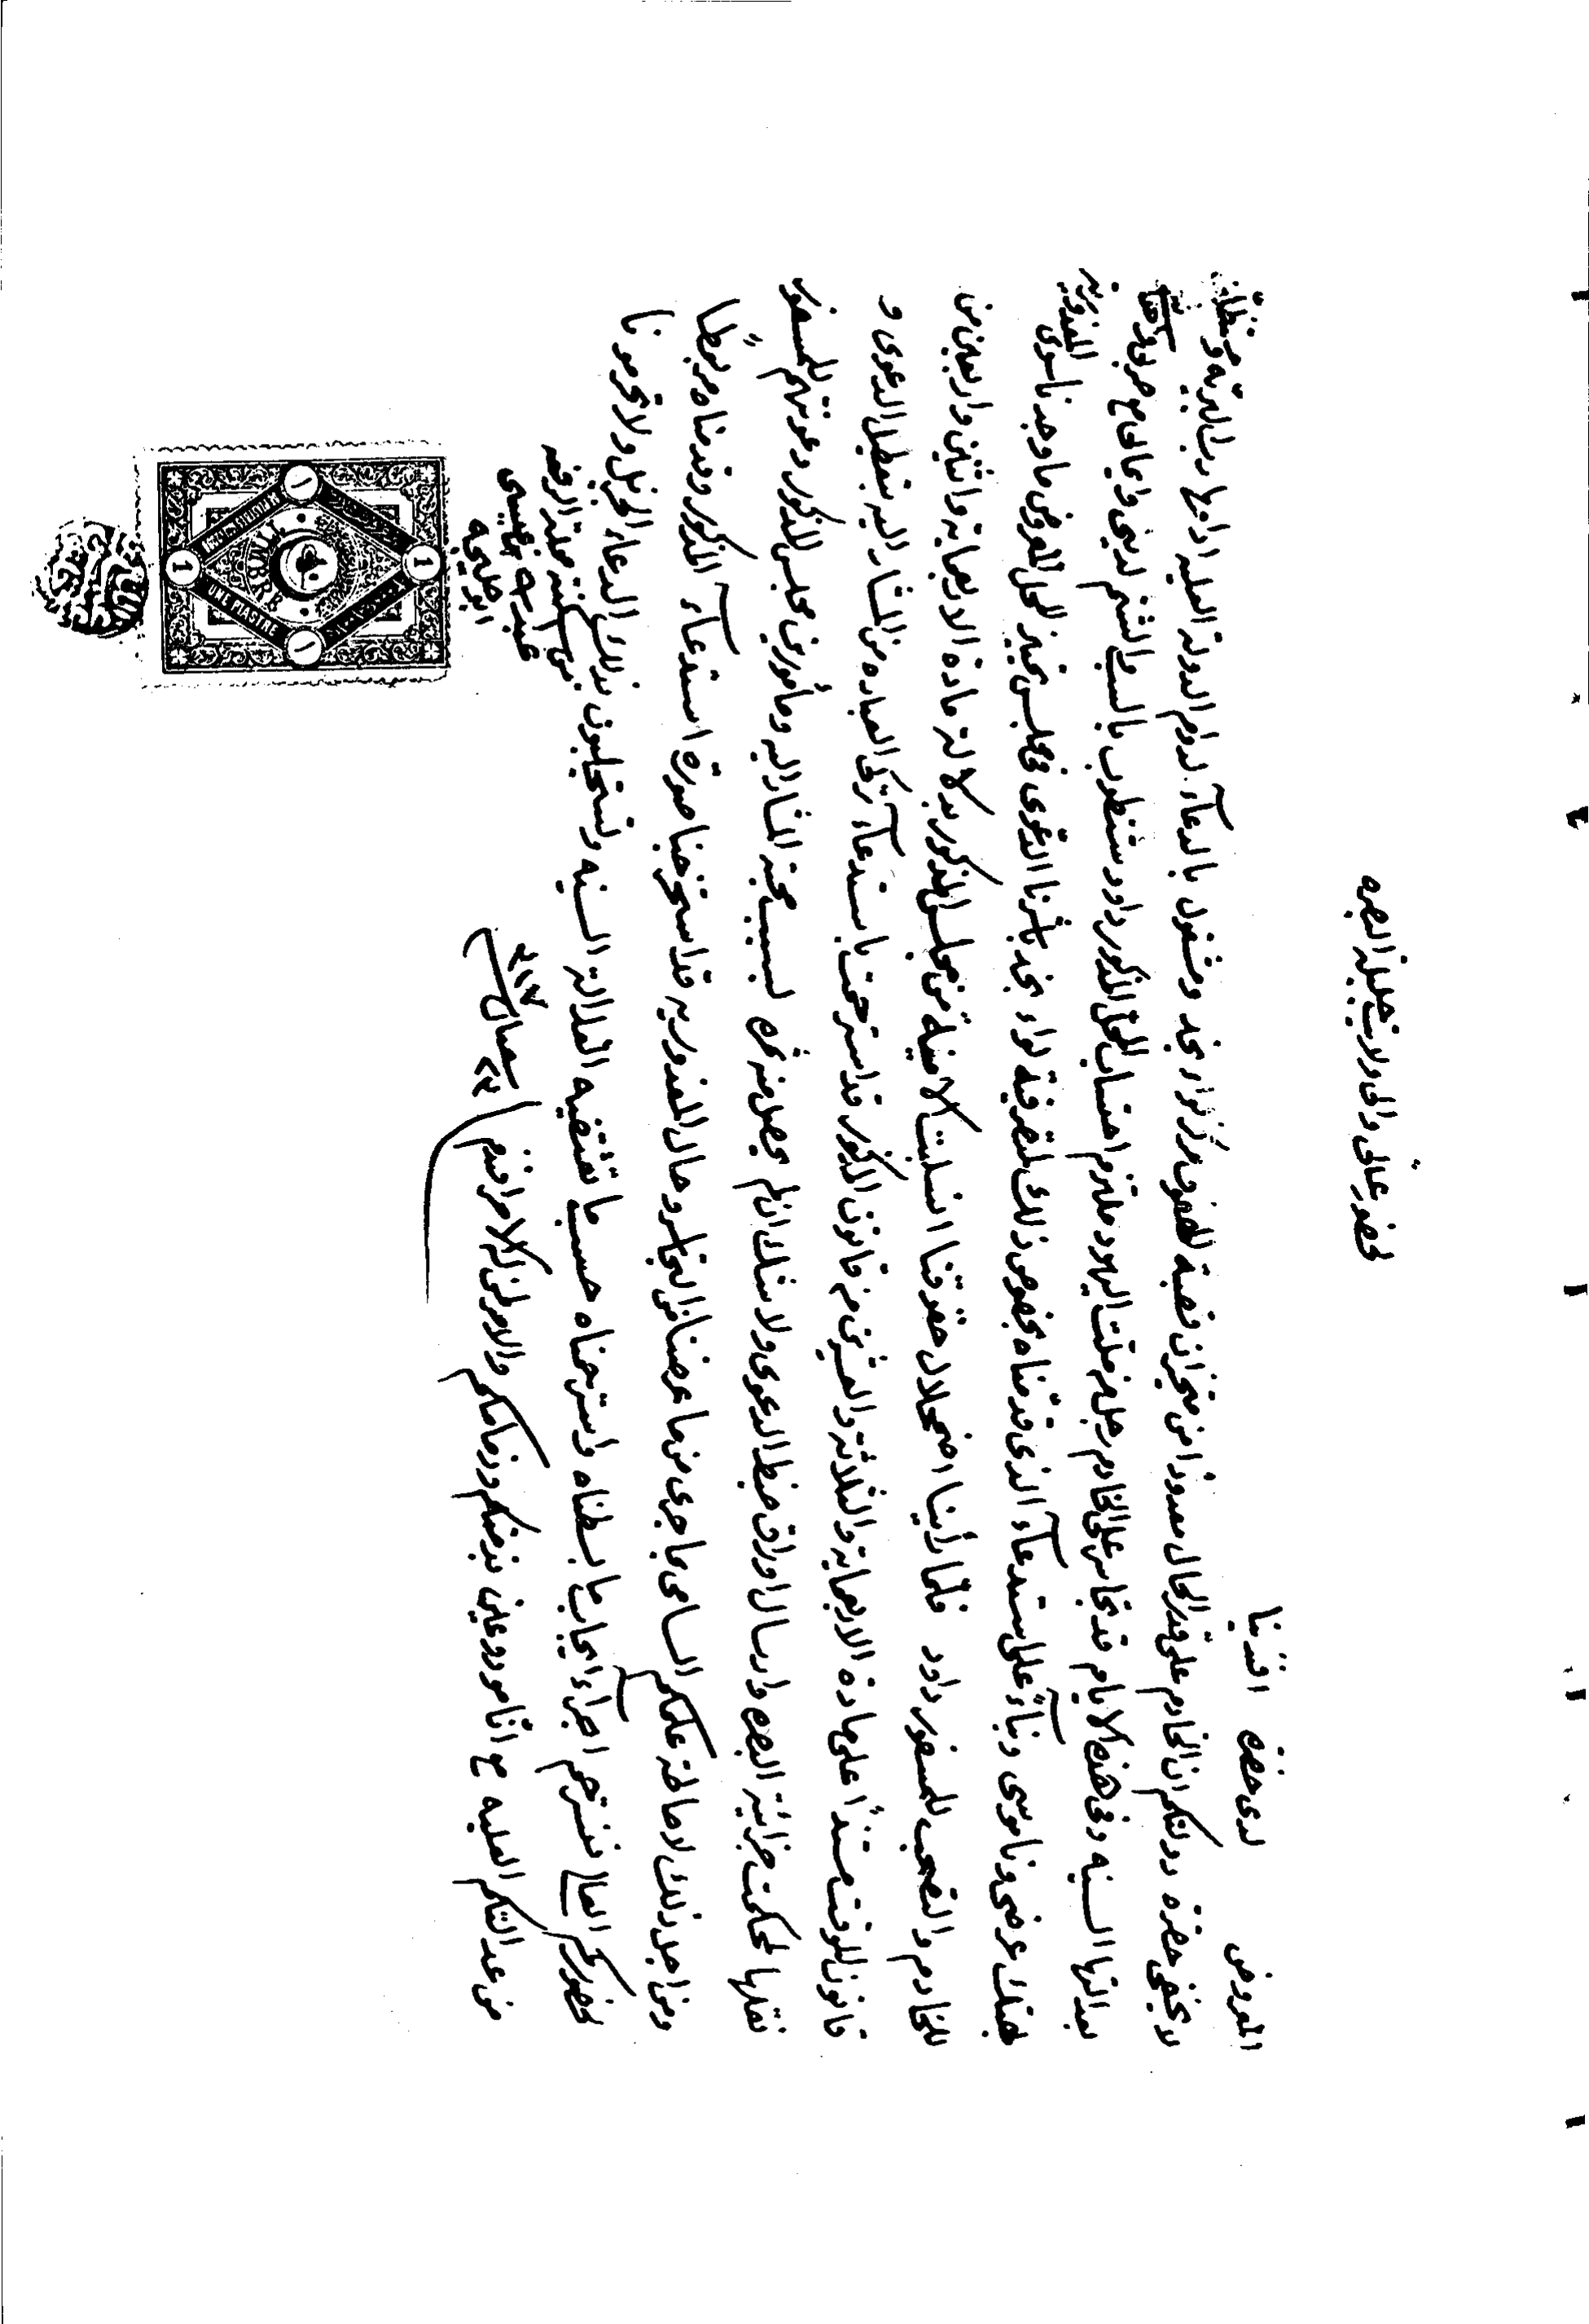 لحضور عالى والى ولايت جليلة البصره
المعروض لدى حضرة افندينا
لا يخفى حضرة دولتكم ان الخادم على قدر الحال معدودا من متحيزان قصبة الهفوف مركز لواء نجد ومشغول بالدعآء لدوام الدولة العليه ادامها رب البريه ومحتظا
بعدالتها السنيه وفى هذه الايام قد تجاسر على الخادم رجل من ملت اليهود ملتزم احتساب المحل المذكور داود شنطوب بالسب والشتم لديني وايماني مع ضرب
هتك عرضى وناموسى وبنآءً على استدعآء الذى قدمناه بخصوص ذلك لمتصرفية لواء نجد باشرنا الدعوى فى مجلس تميز المحل المعروض ما وجدنا سوى المغدوريه
للخادم والتصحب للمسفور داود فلما رأينا اضمحلال حقوقنا انسلبت الامنية من مجلس المذكور بدلالة مادة الاربعماية واثنين واربعين من
قانون الموقت مستنداً على مادة الاربعماية والثلاثة والعشرين من قانون المذكور قد استرحمت باستدعآء تركى العباره من المشار اليه بتعطيل الدعوى و
نقلها لمحكمت جزائية البصره وارسال اوراق ضبط الدعوى ولا شك ان لم يحصل منه ثمره لسبب محبة المشار اليه ومأمورين مجلس المذكور وعونتهم للمسفور
ومن اجل ذلك لاحاطة علمكم السامى بما جرى من ما عرضنا من التجاسر وحال المغدوريه قد استخرجنا صورة استدعآء المذكور وقدمناه مربوطاً
لحضوركم العالي فنسترحم اجرآء ايجاب ما بسطناه واسترحمناه حسب ما تقتضيه العدالة السنيه وتستجلبون بذلك الدعاء الجزيل ولا تحرمونا
من عدالتكم العليه مع انّا مودوعين بذمتكم وزمامكم والامر لمن له الامر افندم
من سكنة محلة الرفعه
ابو حليمه
TIMBRE
UNE PIASTRE
1
1
١
١